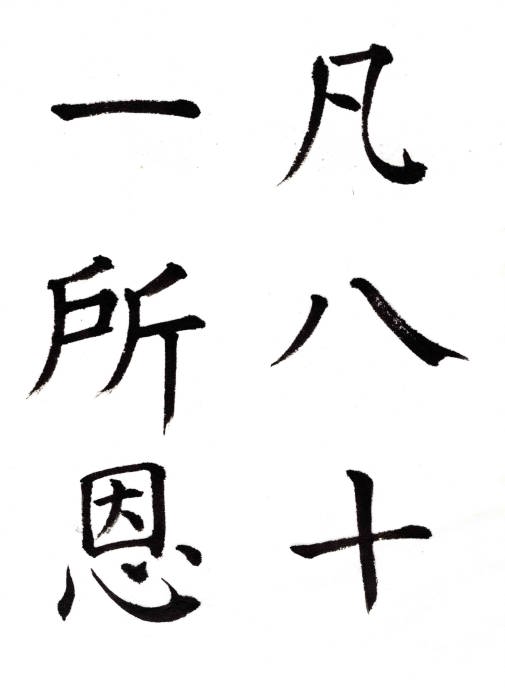 凡八十
一所恩